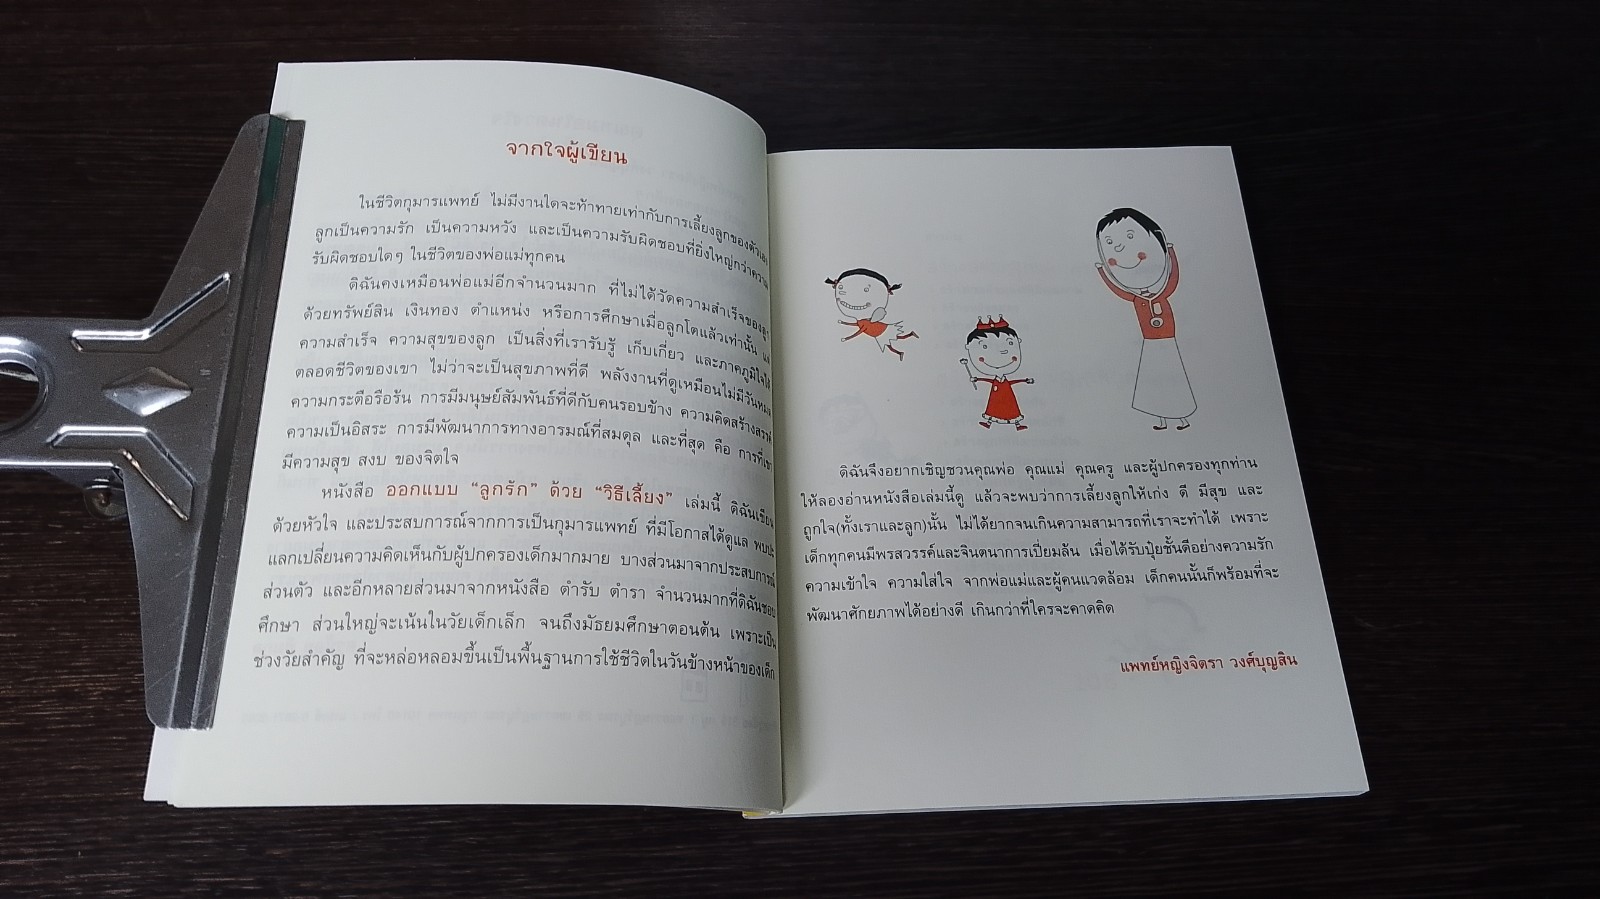 จากใจผู้เขียน
ในชีวิตกุมารแพทย์ ไม่มีงานใดจะท้าทายเท่ากับการเลี้ยงลูกของตัวเอง
ลูกเป็นความรัก เป็นความหวัง และเป็นความรับผิดชอบที่ยิ่งใหญ่กว่าความ
รับผิดชอบใดๆ ในชีวิตของพ่อแม่ทุกคน
ดิฉันคงเหมือนพ่อแม่อีกจำนวนมาก ที่ไม่ได้วัดความสำเร็จของลูก
ด้วยทรัพย์สิน เงินทอง ตำแหน่ง หรือการศึกษาเมื่อลูกโตแล้วเท่านั้น แต่
ความสำเร็จ ความสุขของลูก เป็นสิ่งที่เรารับรู้ เก็บเกี่ยว และภาคภูมิใจได้
ตลอดชีวิตของเขา ไม่ว่าจะเป็นสุขภาพที่ดี พลังงานที่ดูเหมือนไม่มีวันหมด
ความกระตือรือร้น การมีมนุษย์สัมพันธ์ที่ดีกับคนรอบข้าง ความคิดสร้างสรรค์
ความเป็นอิสระ การมีพัฒนาการทางอารมณ์ที่สมดุล และที่สุด คือ การที่เขา
มีความสุข สงบ ของจิตใจ
หนังสือ ออกแบบ “ลูกรัก” ด้วย “วิธีเลี้ยง” เล่มนี้ ดิฉันเขียน
ด้วยหัวใจ และประสบการณ์จากการเป็นกุมารแพทย์ ที่มีโอกาสได้ดูแล พบปะ
แลกเปลี่ยนความคิดเห็นกับผู้ปกครองเด็กมากมาย บางส่วนมาจากประสบการณ์
ส่วนตัว และอีกหลายส่วนมาจากหนังสือ ตำรับ ตำรา จำนวนมากที่ดิฉันชอบ
ศึกษา ส่วนใหญ่จะเน้นในวัยเด็กเล็ก จนถึงมัธยมศึกษาตอนต้น เพราะเป็น
ช่วงวัยสำคัญ ที่จะหล่อหลอมขึ้นเป็นพื้นฐานการใช้ชีวิตในวันข้างหน้าของเด็ก
ดิฉันจึงอยากเชิญชวนคุณพ่อ คุณแม่ คุณครู และผู้ปกครองทุกท่าน
ให้ลองอ่านหนังสือเล่มนี้ดู แล้วจะพบว่าการเลี้ยงลูกให้เก่ง ดี มีสุข และ
ถูกใจ(ทั้งเราและลูก)นั้น ไม่ได้ยากจนเกินความสามารถที่เราจะทำได้ เพราะ
เด็กทุกคนมีพรสวรรค์และจินตนาการเปี่ยมล้น เมื่อได้รับปุ๋ยชั้นดีอย่างความรัก
ความเข้าใจ ความใส่ใจ จากพ่อแม่และผู้คนแวดล้อม เด็กคนนั้นก็พร้อมที่จะ
พัฒนาศักยภาพได้อย่างดี เกินกว่าที่ใครจะคาดคิด
แพทย์หญิงจิตรา วงศ์บุญสิน